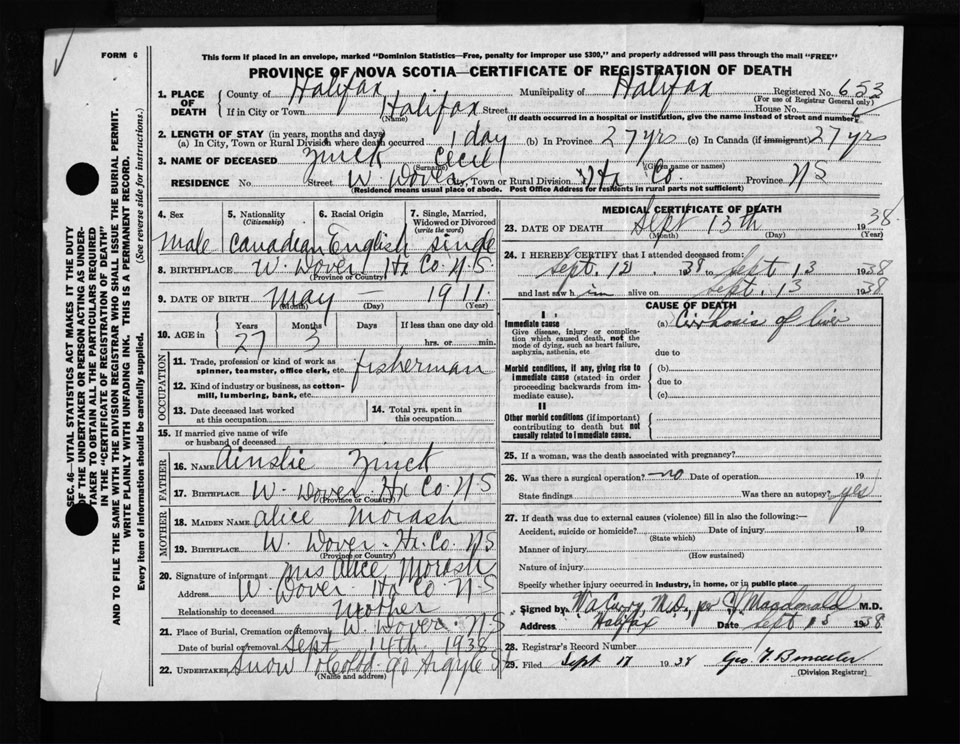 FORM 6
This form if placed in an envelope, marked "Dominion Statistics—Free, penalty for improper use $300," and properly addressed will pass through the mail "FREE"
PROVINCE OF NOVA SCOTIA—CERTIFICATE OF REGISTRATION OF DEATH
1. PLACE OF DEATH County of Halifax Municipality of Halifax Registered No. 653
(For use of Registrar General only)
If in City or Town Halifax Street House No.
(Name) (If death occurred in a hospital or institution, give the name instead of street and number)
2. LENGTH OF STAY (in years, months and days)
(a) In City, Town or Rural Division where death occurred 1 day (b) In Province 27 yrs (c) In Canada (if immigrant) 27 yrs
3. NAME OF DECEASED Zinck Cecil
(Surname) (Given name or names)
RESIDENCE No. Street W. Dover City, Town or Rural Division Hx Co. Province N S
(Residence means usual place of abode. Post Office Address for residents in rural parts not sufficient)
SEC. 46—VITAL STATISTICS ACT MAKES IT THE DUTY
OF THE UNDERTAKER OR PERSON ACTING AS UNDER-
TAKER TO OBTAIN ALL THE PARTICULARS REQUIRED
IN THE "CERTIFICATE OF REGISTRATION OF DEATH"
AND TO FILE THE SAME WITH THE DIVISION REGISTRAR WHO SHALL ISSUE THE BURIAL PERMIT.
WRITE PLAINLY WITH UNFADING INK. THIS IS A PERMANENT RECORD.
Every item of information should be carefully supplied. (See reverse side for instructions.)
4. Sex 5. Nationality (Citizenship) 6. Racial Origin 7. Single, Married, Widowed or Divorced (write the word)
male Canadian English single
8. BIRTHPLACE W. Dover Hx Co. N-S
(Province or Country)
9. DATE OF BIRTH May — 1911
(Month) (Day) (Year)
10. AGE in Years Months Days If less than one day old
27 3 hrs. or min.
OCCUPATION
11. Trade, profession or kind of work as spinner, teamster, office clerk, etc. fisherman
12. Kind of industry or business, as cotton-mill, lumbering, bank, etc.
13. Date deceased last worked at this occupation
14. Total yrs. spent in this occupation
15. If married give name of wife or husband of deceased
FATHER
16. NAME Ainslie Zinck
17. BIRTHPLACE W. Dover Hx Co N-S
(Province or Country)
MOTHER
18. MAIDEN NAME Alice Morash
19. BIRTHPLACE W. Dover. Hx. Co. N S
(Province or Country)
20. Signature of informant Mrs Alice Morash
Address W. Dover Hx Co N-S
Relationship to deceased Mother
21. Place of Burial, Cremation or Removal W. Dover. N-S
Date of burial or removal Sept. 14th. 1938
22. UNDERTAKER Snow & Co Ltd 90 Argyle St
(Name and address)
MEDICAL CERTIFICATE OF DEATH
23. DATE OF DEATH Sept 13th 1938
(Month) (Day) (Year)
24. I HEREBY CERTIFY that I attended deceased from:
Sept. 12 1938 to Sept 13 1938
and last saw him alive on Sept. 13 1938
CAUSE OF DEATH
I
Immediate cause
Give disease, injury or complication which caused death, not the mode of dying, such as heart failure, asphyxia, asthenia, etc
(a) Cirrhosis of liver
due to
Morbid conditions, if any, giving rise to immediate cause (stated in order proceeding backwards from immediate cause).
(b)
due to
(c)
II
Other morbid conditions (if important) contributing to death but not causally related to immediate cause.
25. If a woman, was the death associated with pregnancy?
26. Was there a surgical operation? — no Date of operation 19
State findings Was there an autopsy? yes
27. If death was due to external causes (violence) fill in also the following:—
Accident, suicide or homicide? Date of injury 19
(State which)
Manner of injury
(How sustained)
Nature of injury
Specify whether injury occurred in industry, in home, or in public place
Signed by W A Curry M.D., per Macdonald M.D.
Address Halifax Date Sept 13 1938
28. Registrar's Record Number
29. Filed Sept 17 1938 Geo
(Division Registrar)